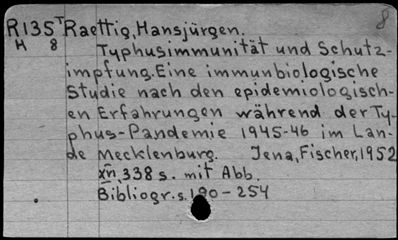 8
R135T Raettig, Hansjürgen.
H 8 Typhusimmunität und Schutz-
impfung. Eine immunbiologische
Studie nach den epidemiologisch-
en Erfahrungen während der Ty-
phus-Pandemie 1945-46 im Lan-
de Mecklenburg. Jena, Fischer, 1952
XVI, 338 s. mit Abb.
Bibliogr. s. 190-254